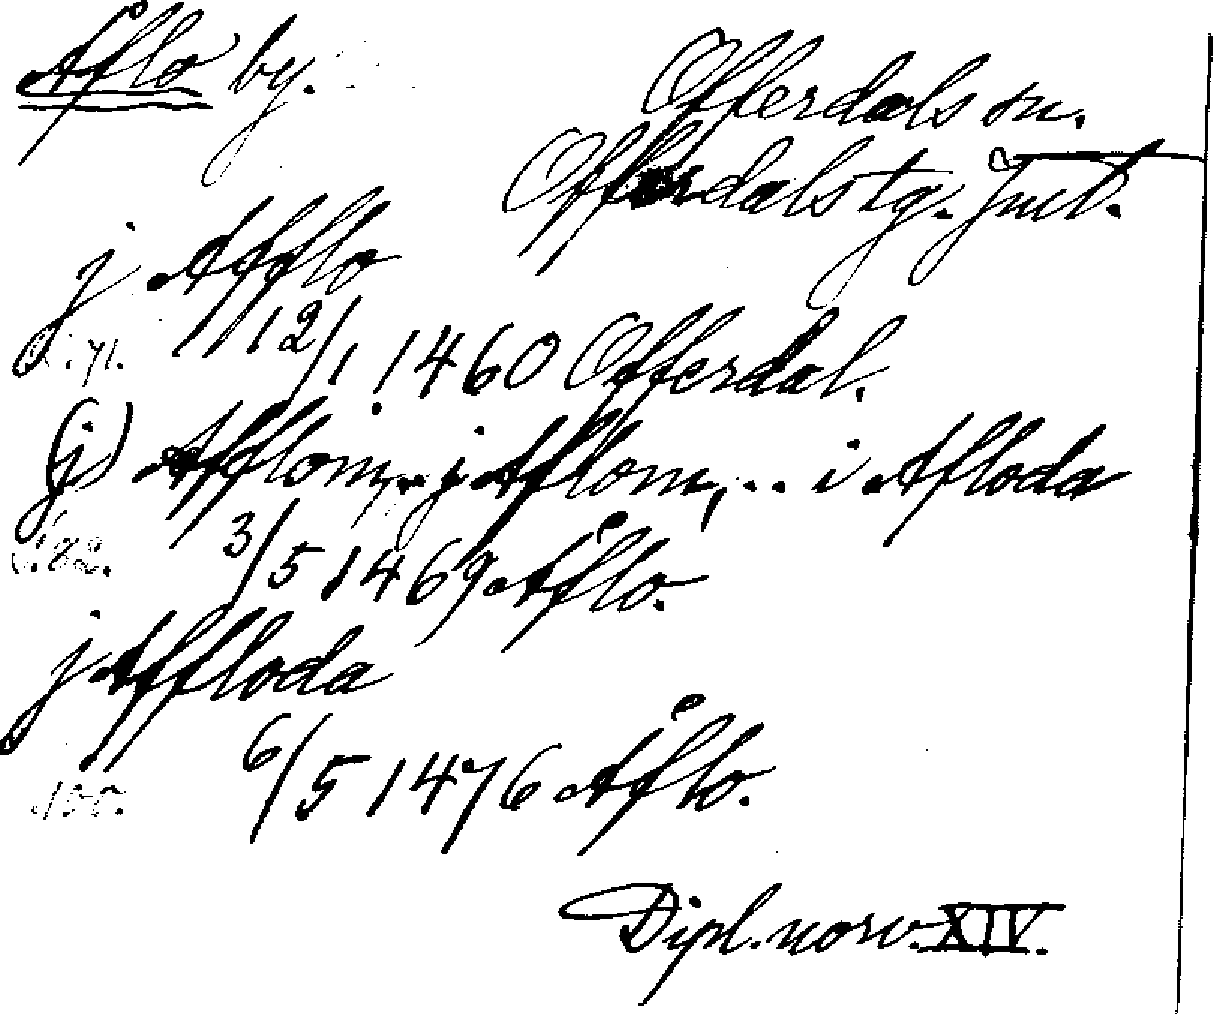 Aflo by.
Offerdals sn.
Offerdals tg. Jmtl.
j Afflo
12/1 1460 Offerdal.
(j) Afflom,.. j Afflom,... i Afloda
s. 82. 3/5 1469 Åflo.
j Affloda
s. 155. 6/5 1476 Åflo.
Dipl. norv. XIV.